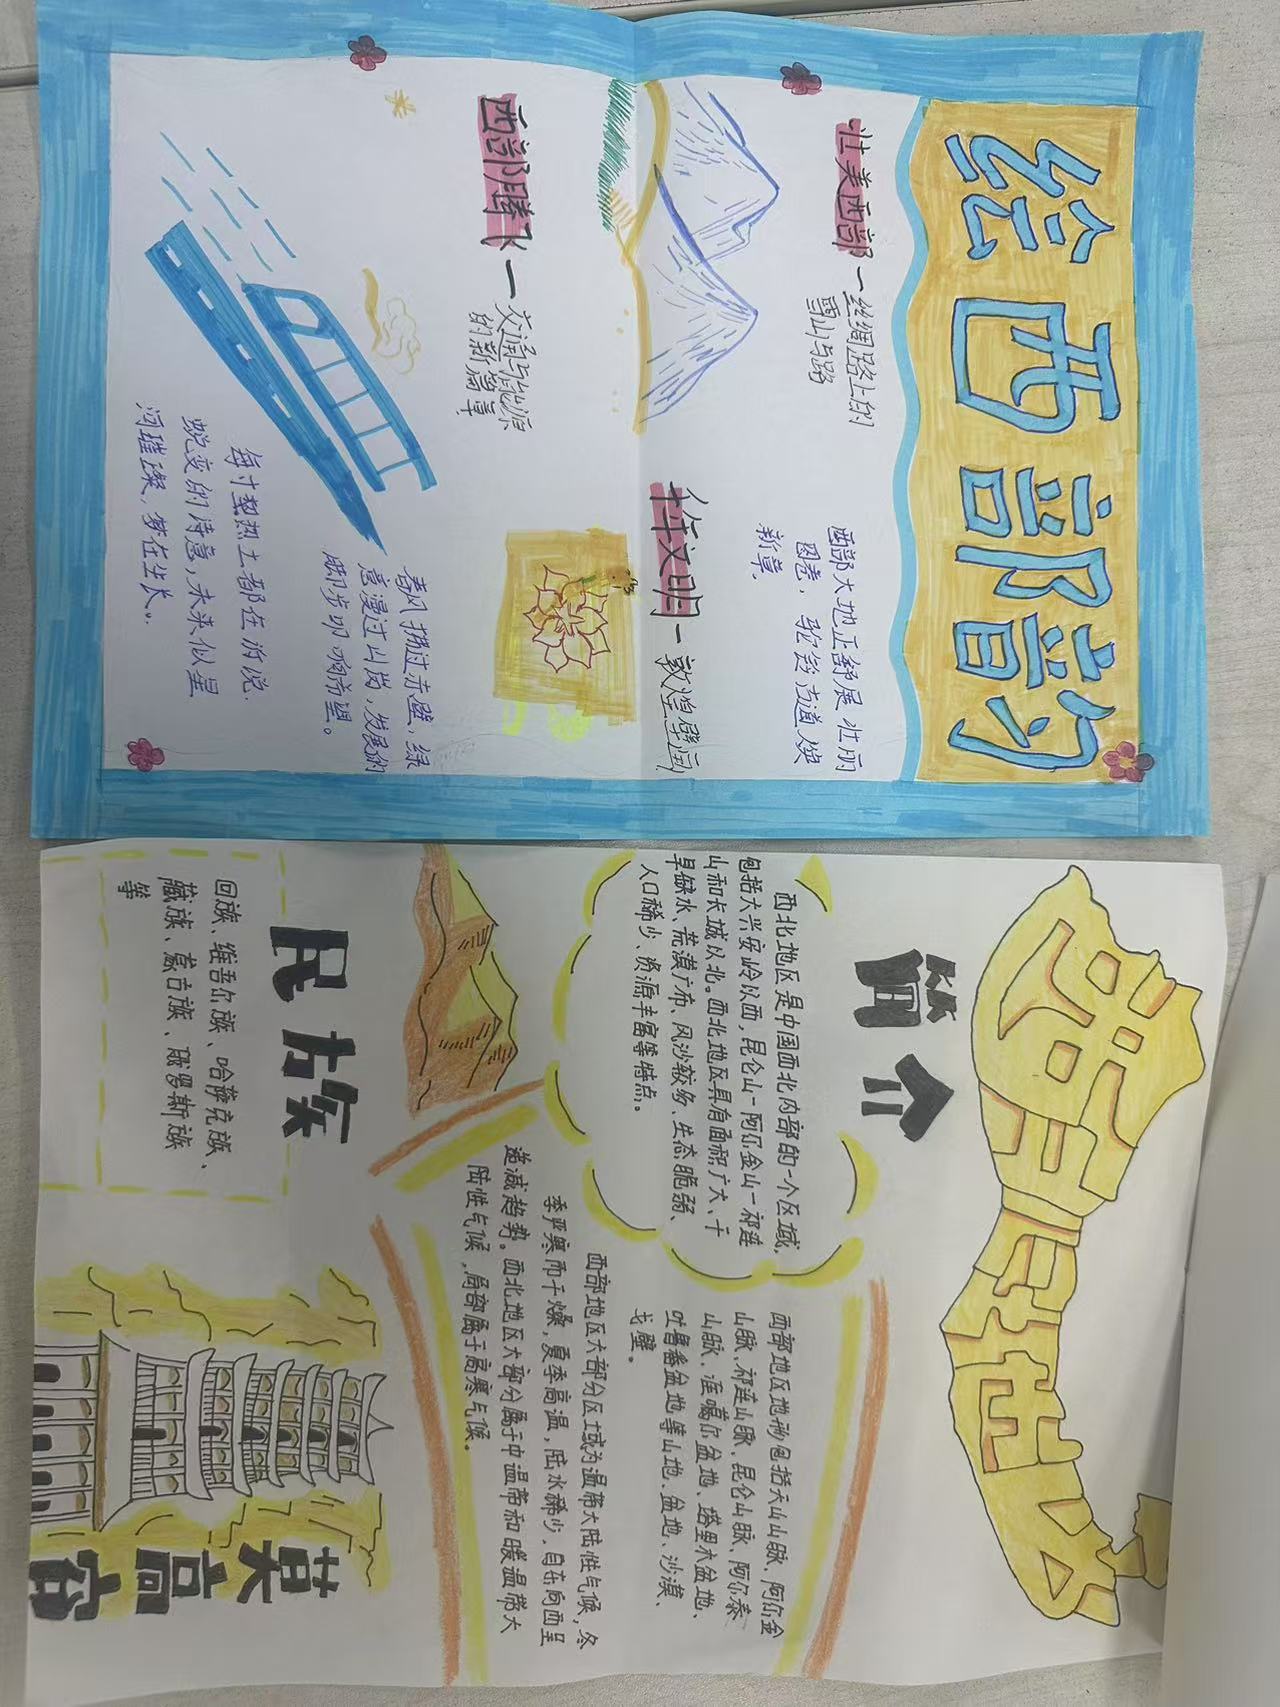 绘西部韵
壮美西部—丝绸路上的
雪山与路
西部大地正舒展壮丽
图卷,驼铃古道焕
新章.
千年文明—敦煌壁画
西部腾飞—交通与能源
的新篇章
春风拂过赤壁,绿
意漫过山岗,发展的
脚步叩响希望。
每寸热土都在诉说
蜕变的诗意,未来似星
河璀璨,梦在生长。
简介
西北地区是中国西北内部的一个区域,
包括大兴安岭以西,昆仑山—阿尔金山—祁连
山和长城以北。西北地区具有面积广大、干
旱缺水、荒漠广布、风沙较多、生态脆弱、
人口稀少、资源丰富等特点。
西部地区地形包括天山山脉、阿尔金
山脉、祁连山脉、昆仑山脉、阿尔泰
山脉、准噶尔盆地、塔里木盆地、
吐鲁番盆地等山地、盆地、沙漠、
戈壁。
西部地区大部分区域为温带大陆性气候,冬
季严寒而干燥,夏季高温,降水稀少,自东向西呈
递减趋势。西北地区大部分属于中温带和暖温带大
陆性气候,局部属于高寒气候。
民族
回族、维吾尔族、哈萨克族、
藏族、蒙古族、俄罗斯族
等
莫高窟